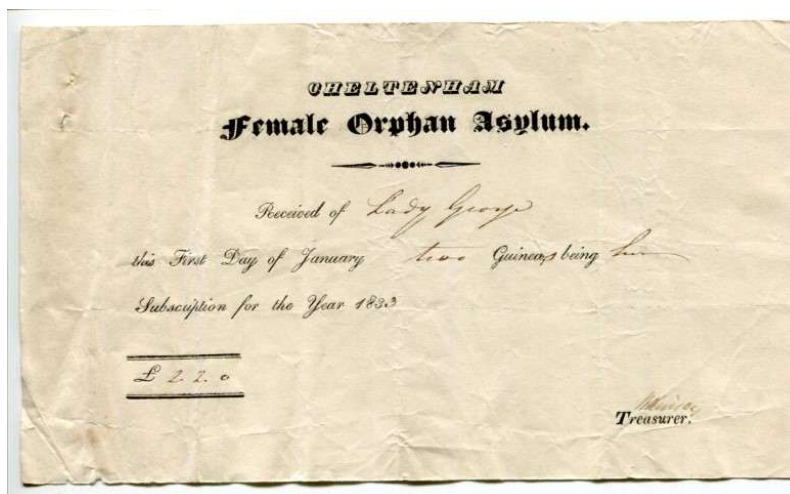 CHELTENHAM
Female Orphan Asylum.
Received of Lady George
this First Day of January two Guineas being
Subscription for the Year 1833
£ 2.2.0
Treasurer.